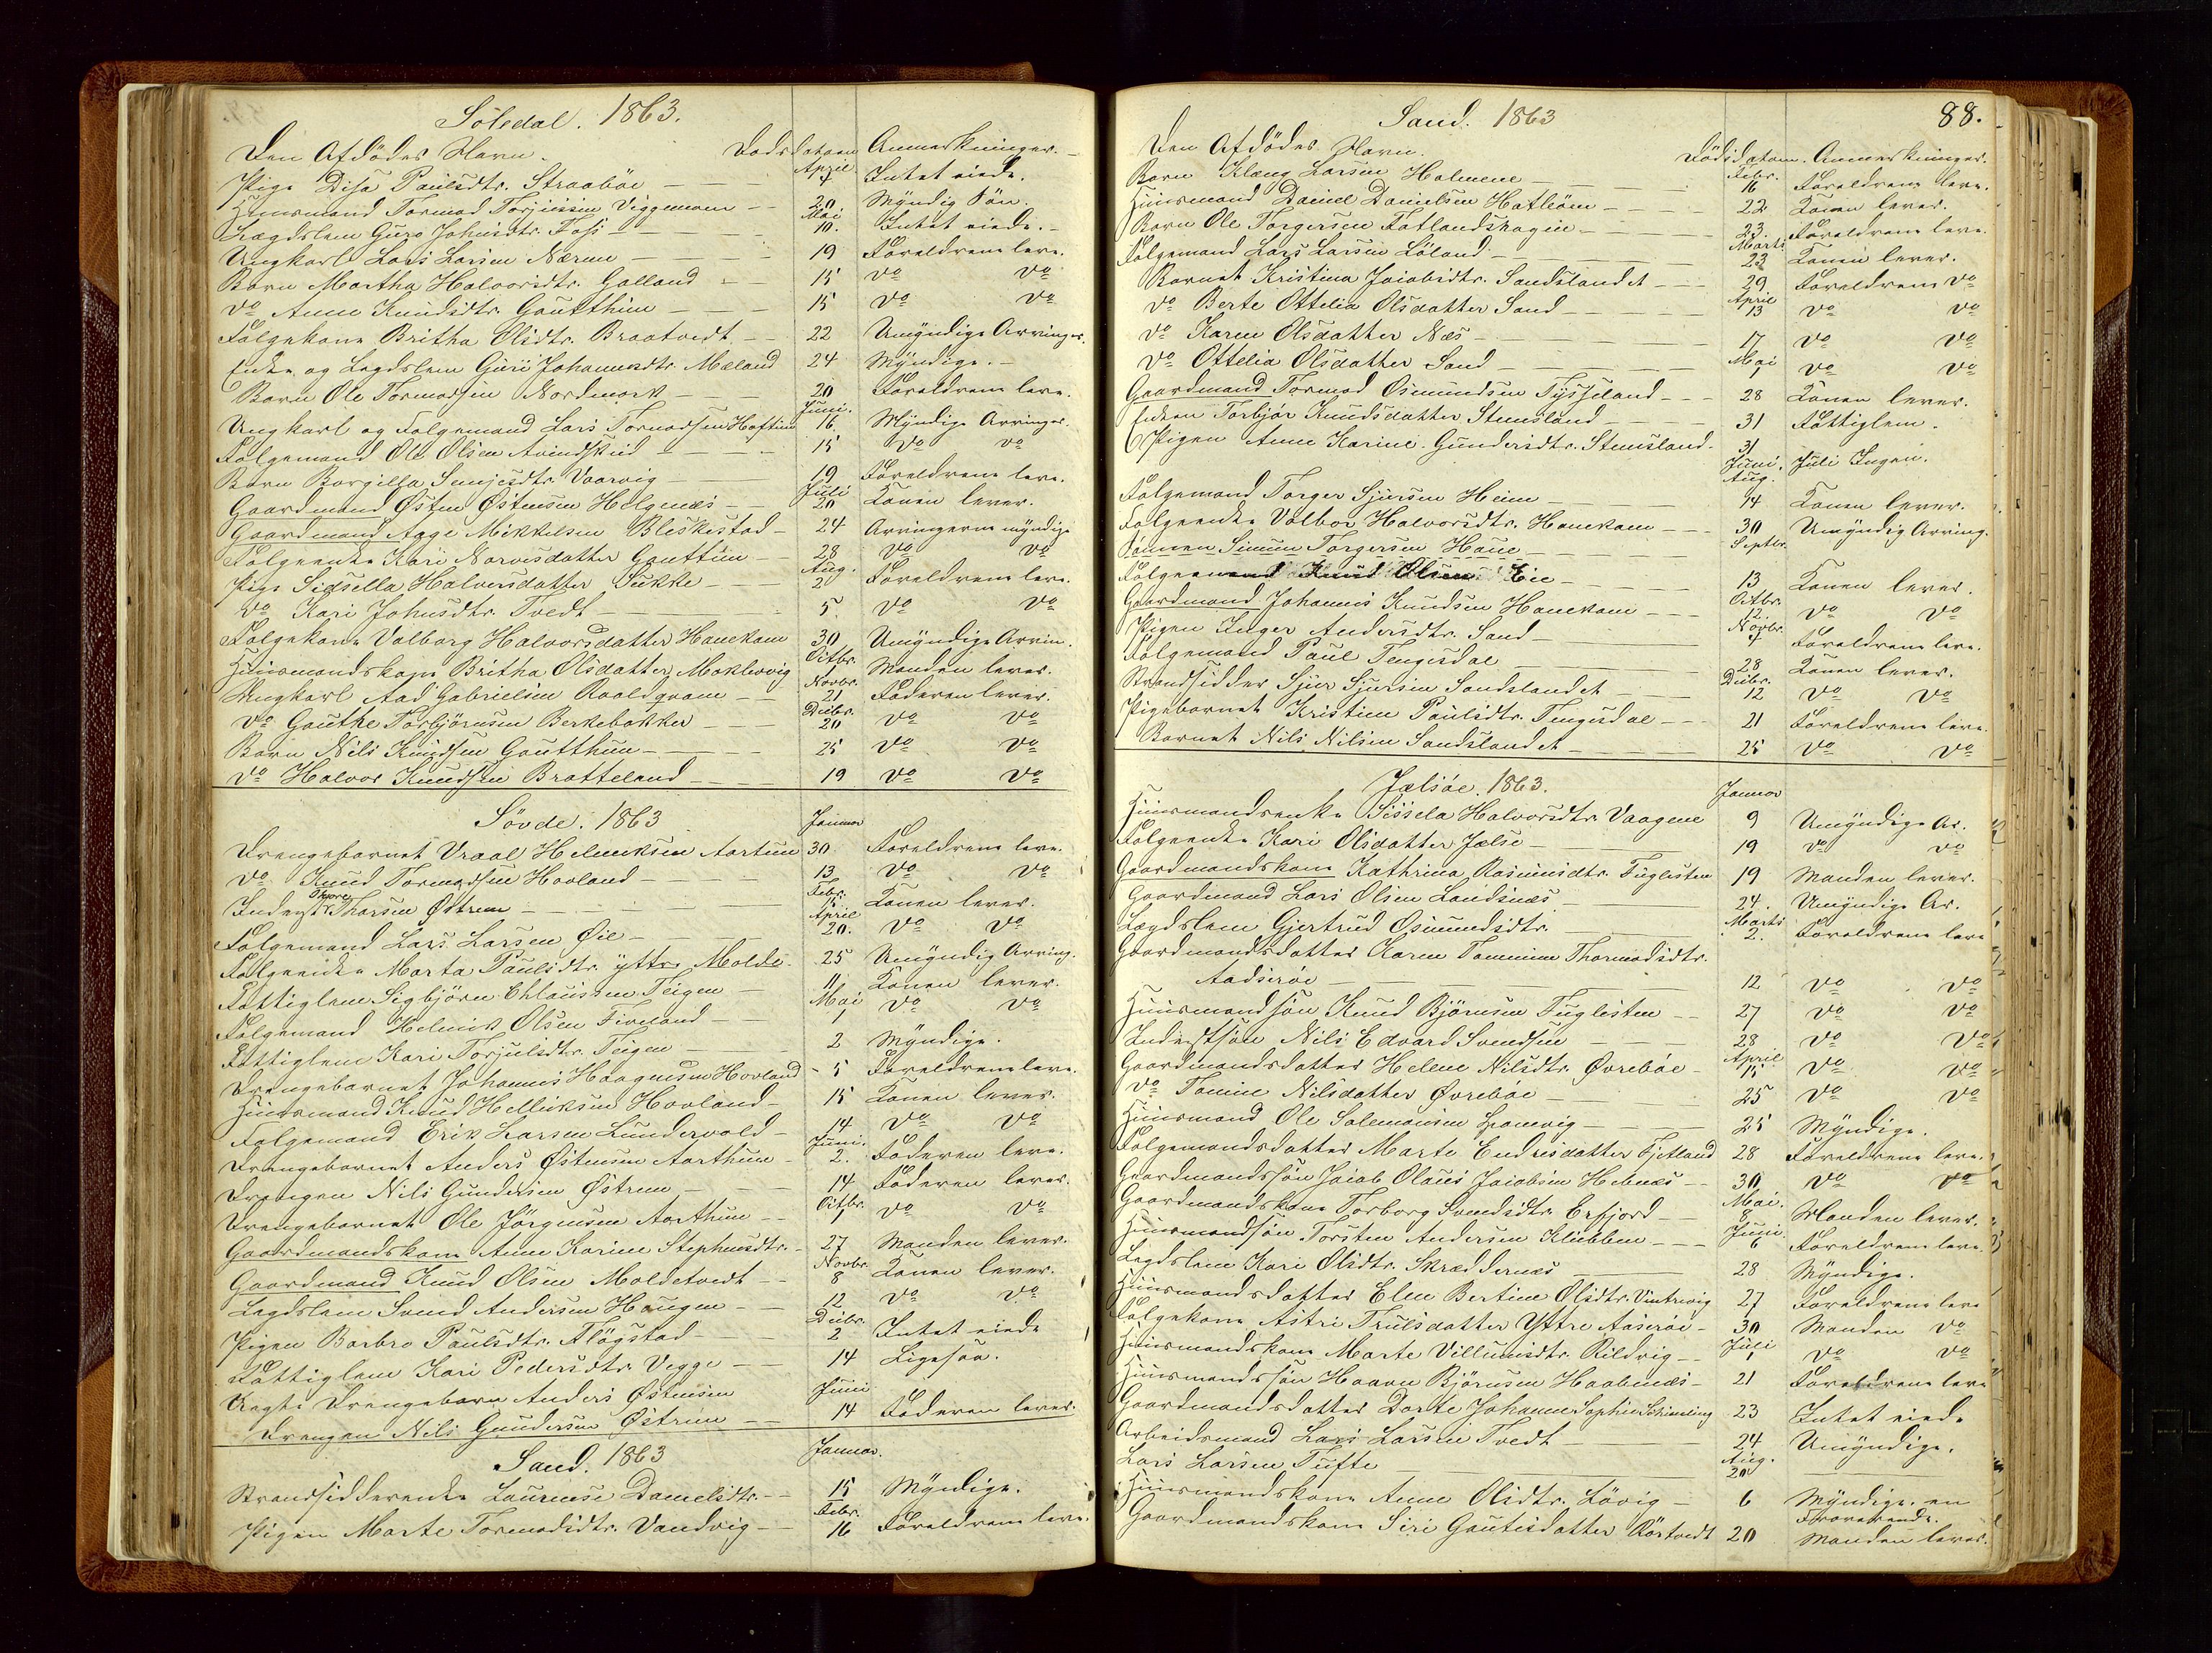 Søledal. 1863.
Den Afdødes Navn. Dødsdatoen Anmerkninger.
Pige Disa Paulsdtr. Straabøe — April 7 Intet eiede.
Huusmand Tormod Torjussen Viggemoen — 20 Myndig Søn.
Lægdslem Guro Johnsdtr. Foss — Mai 10. Intet eiede. —
Ungkarl Lars Larsen Nærem — 19 Foreldrene leve.
Barn Martha Halvorsdtr. Golland — 15 do do
do Anne Knudsdtr. Goutthun — 15 do do
Folgekone Britha Olsdtr. Braatvedt — 22 Umyndige Arvinger.
Enke og Legdslem Guri Johannesdtr. Mæland 24 Myndige. —
Barn Ole Tormodsen Nordmork — 20 Foreldrene leve.
Ungkarl og Folgemand Lars Tormodsen Hoftun Juni. 16. Myndige Arvinger.
Folgemand Ole Olsen Avindskid — 15 do do
Barn Borgilla Svenjesdtr. Vaarvig — 19 Foreldrene leve.
Gaardmand Østen Østensen Helgenæs — Juli 20 Konen lever.
Gaardmand Aage Mikkelsen Bleskestad — 24 Arvingerne myndige
Folgeenke Kari Narvesdatter Gouttun — 28 do do
Pige Sidsella Halversdatter Sukke — Aug. 2 Foreldrene leve.
do Kari Johnsdtr. Tvedt — 5 do do
Folgekone Valborg Halvorsdatter Hanekam 30 Umyndige Arvin.
Huusmandskone Britha Olsdatter Moklevig Octbr. 1 Manden lever.
Ungkarl Aad Gabrielsen Roaldqvam — Novbr. 21 Foderen lever.
do Gauthe Torbjørnsen Berkebakke — Decbr. 20 do do
Barn Nils Knudsen Goutthun — 25 do do
do Halvor Knudsen Bratteland — 19 do do
Søvde. 1863 Januar
Drengebarnet Vraal Helmiksen Aartun 30 Foreldrene leve.
do Knud Tormodsen Hovland — 13 do do
Inderst Thore Thorsen Østrem — Febr. 15 Konen lever.
Folgemand Lars Larsen Øie — April 20. do do
Folgeenke Marta Paulsdtr. ytte Molde — 25 Umyndig Arving.
Fattiglem Sigbjørn Chlaussen Teigen — 11 Konen lever.
Folgemand Helmik Olsen Fiveland — Mai 1 do do
Fattiglem Kari Torjulsdtr. Teigen — 2 Myndige.
Drengebarnet Johannes Haagensen Hovland — 5 Foreldrene leve.
Huusmand Knud Hellieksen Hovland — 15 Konen lever.
Folgemand Erik Larsen Lundervold — 14 do do
Drengebarnet Anders Østensen Aarthun — Juni. 2. Foderen leve.
Drengen Nils Gundersen Østrem — 14 Foderen lever.
Drengebarnet Ole Jørgensen Aarthun — Octbr. 1 do do
Gaardmandskone Anne Karine Stephensdtr. — 27 Manden lever.
Gaardmand Knud Olsen Moldetvedt — Novbr. 8 Konen lever.
Legdslem Svend Andersen Haugen — 12 do do
Pigen Barbro Paulsdtr. Fløgstad — Decbr. 2 Intet eiede
Fattiglem Kari Pedersdtr. Vegge — 14 Ligesaa.
Uægte Drengebarn Anders Østensen Juni
Drengen Nils Gundersen Østrem — 14 Foderen lever.
Sand. 1863 Januar.
Strandsidderenke Laurense Danielsdtr. — 15 Myndige.
Pigen Marte Tormodsdtr. Vandvig — Febr. 16 Foreldrene leve.
Sand. 1863 88.
Den Afdødes Navn. Dødsdatoen. Anmerkninger.
Barn Klaug Larsen Holmene — Febr. 16 Foreldrene leve.
Huusmand Daniel Danielsen Hatløen — 22 Konen lever.
Barn Ole Torgersen Fatlandshagen — 23. Foreldrene leve.
Folgemand Lars Larsen Løland — Marts 23 Konen lever.
Barnet Kristina Jacobsdtr. Sandslandet — 29 Foreldrene do
do Berte Ottelia Olsdatter Sand — April 13 do do
do Karen Olsdatter Næs — 17 do do
do Ottelia Olsdatter Sand — Mai 1 do do
Gaardmand Tormod Osmundsen Tysseland — 28 Konen lever.
Enken Torbjør Knudsdatter Stensland — 31 Fattiglem.
Pigen Anne Karine Gundersdtr. Stensland. 31
Juni. Juli Ingen.
Folgemand Torger Sjursen Heim — Aug. 14 Konen lever.
Folgeenke Valbor Halvorsdtr. Hanekam — 30 Umyndig Arving.
Sønnen Simon Torgersen Haue — Septbr.
Folgemand Knud Olsen Eie — 13 Konen lever.
Gaardmand Johannes Knudsen Hanekam — Octbr. 12 do do
Pigen Inger Andersdtr. Sand — Novbr. 7 Foreldrene leve.
Folgemand Paul Tengesdal — 28 Konen lever.
Strandsidder Sjur Sjursen Sandslandet — Decbr. 12 do do
Pigebarnet Kristine Paulsdtr. Tengesdal — 21 Foreldrene leve.
Barnet Nils Nilsen Sandslandet — 25 do do
Jælsøe. 1863. Januar
Huusmandsenke Sissela Halvorsdtr. Vaagene 9 Umyndige Ar.
Folgeenke Kari Olsdatter Jælse — 19 do do
Gaardmandskone Kathrina Rasmusdtr. Fuglesten 19 Manden lever.
Gaardmand Lars Olsen Landsnæs — 24. Umyndige Ar.
Lægdslem Gjertrud Osmundsdtr. — Marts 2. Foreldrene leve
Gaardmandsdatter Karen Tomine Thormodsdtr.
Aadserøe — 12 do do
Huusmandsøn Knud Bjørnsen Fuglesten — 27 do do
Inderstsøn Nils Edvard Svendsen — 28 do do
Gaardmandsdatter Helene Nilsdtr. Øvrebøe — April 15 do do
do Tomine Nilsdatter Øvrebøe — 25 do do
Huusmand Ole Salemonsen — 25 Myndige.
Folgemandsdatter Marte Endresdatter Fjetland 28 Foreldrene leve.
Gaardmandssøn Jacob Olaus Jacobsen Hebnes — 30 do do
Gaardmandskone Torborg Svendsdtr. Erfjord — Mai. 8 Manden lever.
Huusmandsøn Torsten Andersen Klubben — Juni 6 Foreldrene leve.
Legdslem Kari Olsdtr. Skreddernes — 28 Myndige.
Huusmandsdatter Elen Bertine Olsdtr. Vintrevig 27 Foreldrene leve
Folgekone Astri Trulsdatter Yttre Aaserøe — 30 Manden do
Huusmandskone Marte Villumsdtr. Rildvig — Juli 1 do do
Huusmandssøn Haavn Bjørnsen Haabenæs — 21 Foreldrene leve
Gaardmandsdatter Dorte Johanne Sophie Schiesling 23 Intet eiede
Arbeidsmand Lars Larsen Tvedt — 24 Umyndige.
Lars Larsen Tufte — Aug. 20 —
Huusmandskone Anne Olsdtr. Løvig — 6 Myndige. en
Fraverende.
Gaardmandskone Siri Goutesdatter Rørtvedt 20 Manden lever.